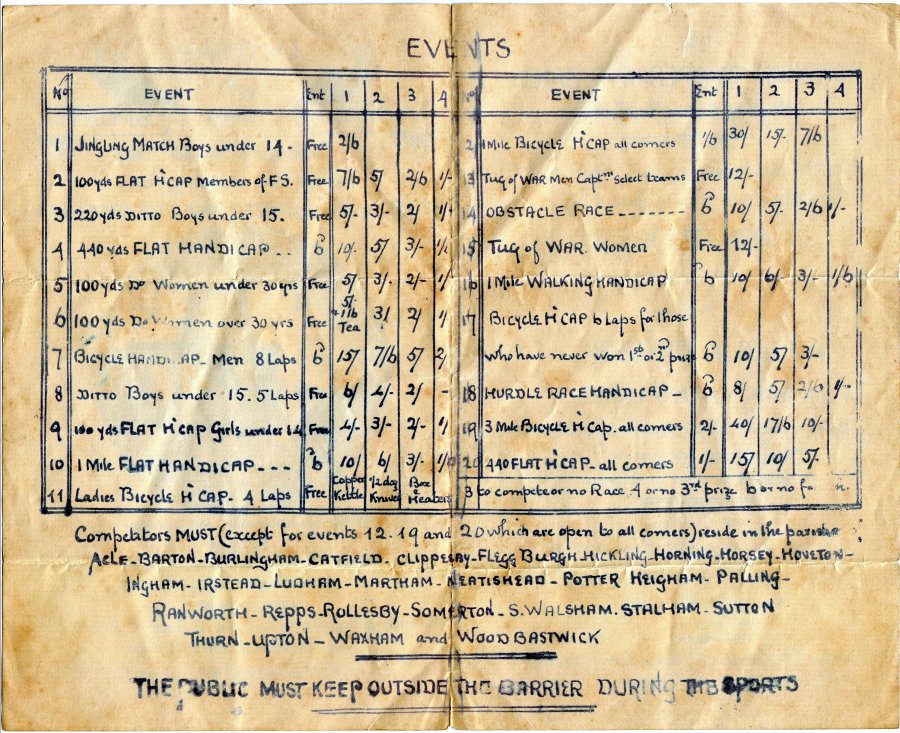 EVENTS
No EVENT Ent 1 2 3 4
1 JINGLING MATCH Boys under 14 - Free 2/6
2 100 yds FLAT H'CAP Members of F.S. Free 7/6 5/ 2/6 1/-
3 220 yds DITTO Boys under 15. Free 5/- 3/- 2/ 1/-
4 440 yds FLAT HANDICAP - - 6 10/- 5/ 3/-
5 100 yds Do Women under 30 yrs Free 5/- 3/- 2/-
6 100 yds Do Women over 30 yrs Free 5/- + 1 lb Tea 3/ 2/
7 BICYCLE HANDICAP - Men 8 Laps 6 15/ 7/6 5/ 2/
8 DITTO Boys under 15. 5 Laps Free 6/ 4/- 2/ -
9 100 yds FLAT H'CAP Girls under 14 Free 4/- 3/- 2/-
10 1 Mile FLAT HANDICAP - - - 6 10/ 6/ 3/-
11 Ladies Bicycle H'CAP - 4 Laps Free Copper Kettle 1/2 doz Knives Box Heaters
No EVENT Ent 1 2 3 4
1 Mile BICYCLE H'CAP all comers 1/6 30/ 15/- 7/6
13 TUG of WAR Men Captns select teams Free 12/-
14 OBSTACLE RACE - - - - - - - 6 10/ 5/- 2/6 1/-
15 TUG of WAR. WOMEN Free 12/-
16 1 Mile WALKING HANDICAP 6 10/ 6/- 3/- 1/6
17 BICYCLE H'CAP 6 Laps for those
who have never won 1st or 2nd prize 6 10/ 5/ 3/-
18 HURDLE RACE HANDICAP - 6 8/ 5/ 2/6 1/-
19 3 Mile BICYCLE H'Cap - all comers 2/- 40/ 17/6 10/-
20 440 FLAT H'CAP - all comers 1/- 15/ 10/ 5/-
3 to compete or no Race. 4 or no 3rd prize 6 or no
Competitors MUST (except for events 12. 19 and 20 which are open to all comers) reside in the
ACLE - BARTON - BURLINGHAM - CATFIELD. CLIPPESBY - FLEGG BURGH. HICKLING - HORNING - HORSEY - HOVETON -
INGHAM - IRSTEAD - LUDHAM - MARTHAM - NEATISHEAD - POTTER HEIGHAM - PALLING -
RANWORTH - REPPS - ROLLESBY - SOMERTON - S. WALSHAM. STALHAM - SUTTON
THURN - UPTON - WAXHAM and WOODBASTWICK
THE PUBLIC MUST KEEP OUTSIDE THE BARRIER DURING THE SPORTS